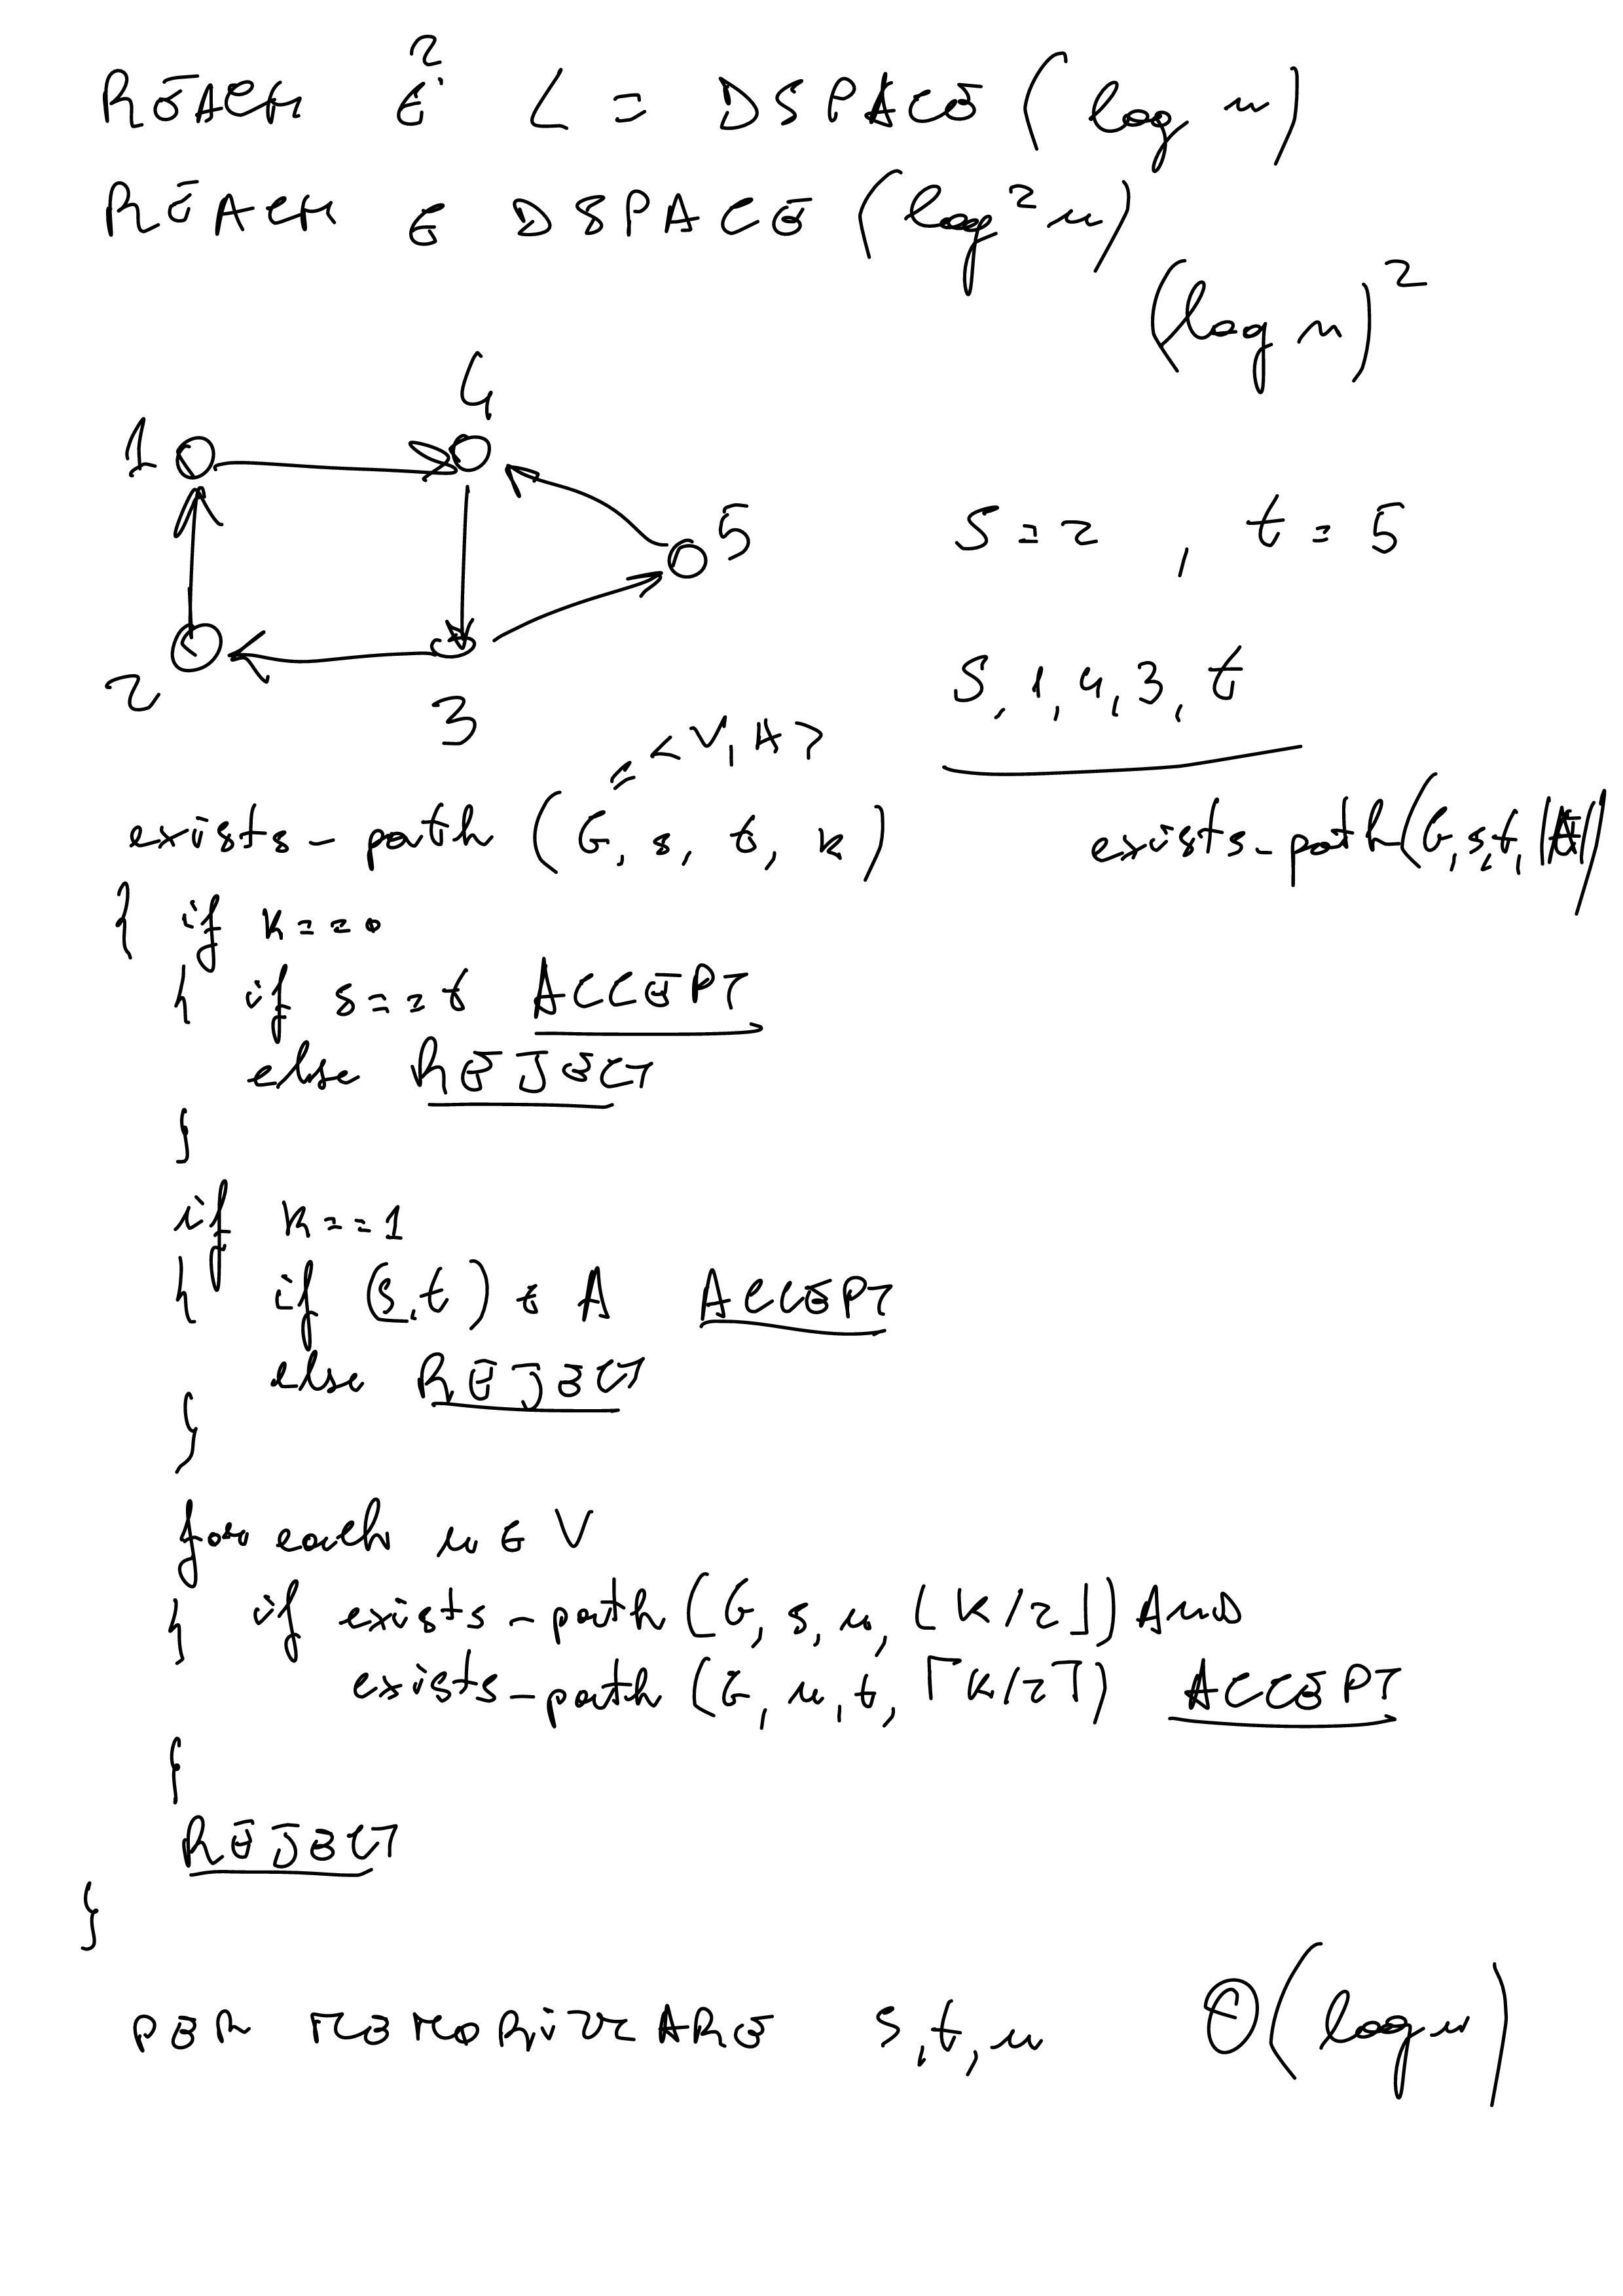 REACH ∈? L = DSPACE (log n)
REACH ∈ DSPACE (log² n)
(log n)²
4
1
5
s = 2 , t = 5
2
3
s, 1, 4, 3, t
= <V, A>
exists-path (G, s, t, k)
exists-path(G, s, t, |A|)
{ if k==0
{ if s==t ACCEPT
else REJECT
}
if k==1
{ if (s,t) ∈ A ACCEPT
else REJECT
}
for each u ∈ V
{ if exists-path (G, s, u, ⌊k/2⌋) AND
exists-path (G, u, t, ⌈k/2⌉) ACCEPT
}
REJECT
}
PER MEMORIZZARE s, t, u Θ(log n)